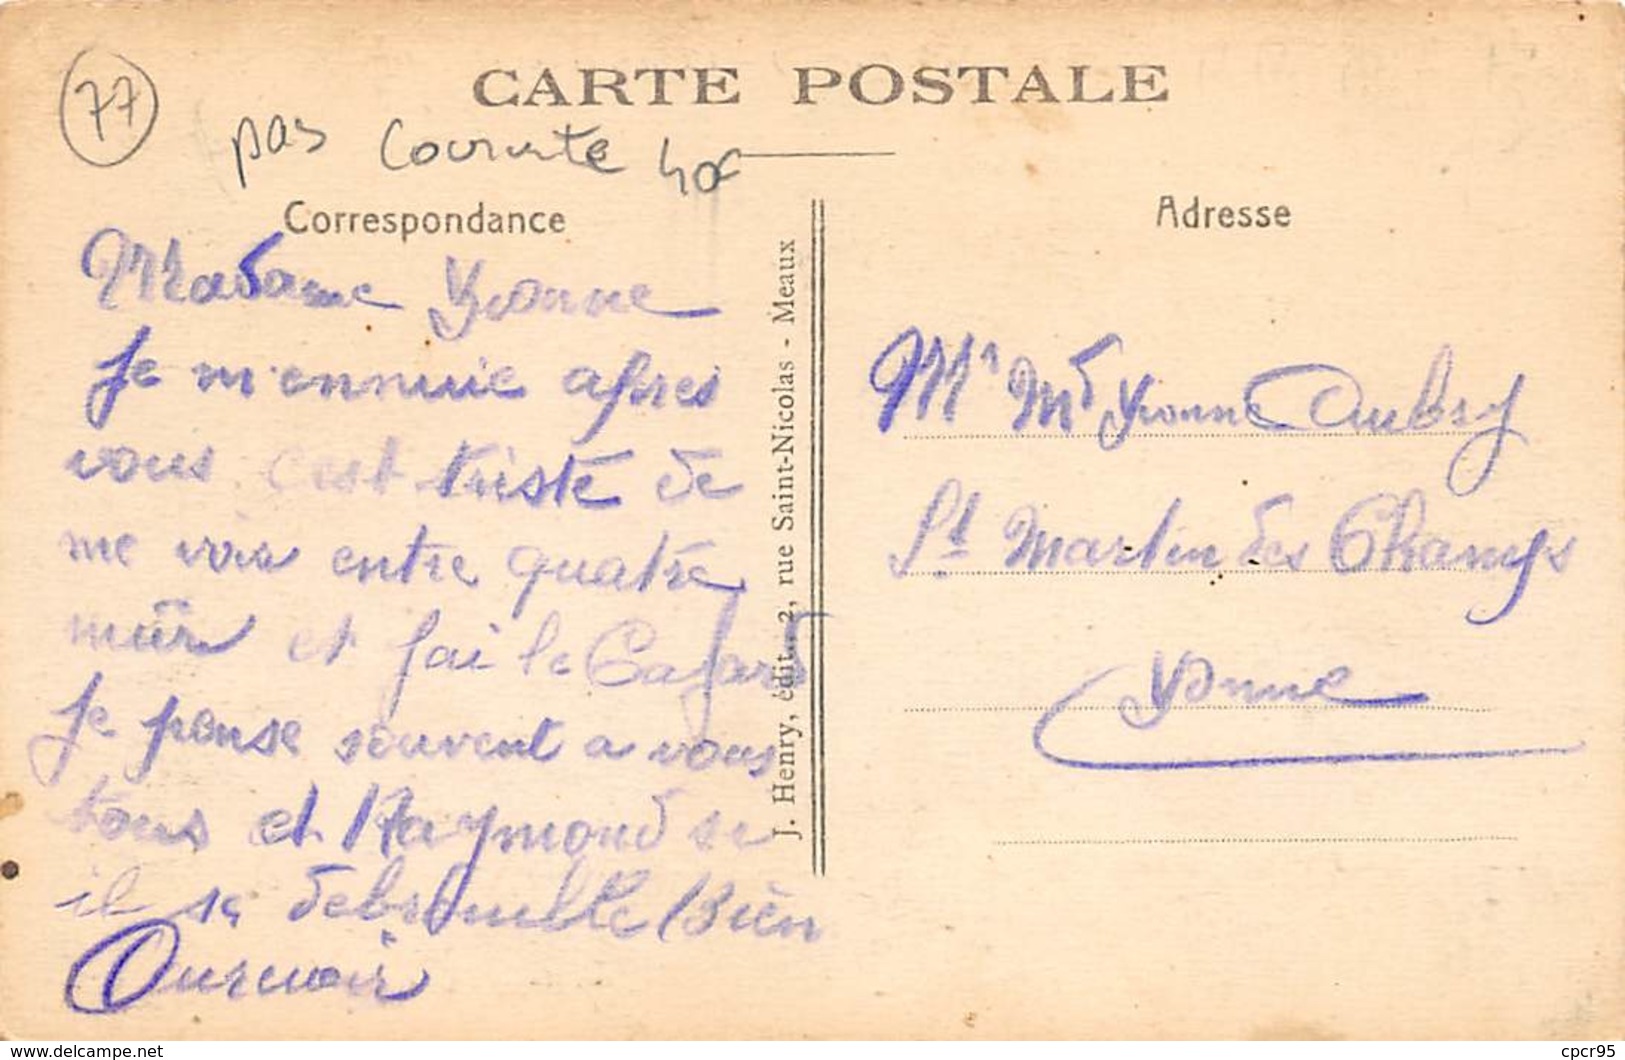 CARTE POSTALE
77
pas courante 40F
Correspondance
Madame Yvonne
Je m'ennuie apres
vous c'est triste de
me voir entre quatre
mûr et jai le Cafard
Je panse souvent a vous
tous et Raymond se
il se debrouille Bien
Ourevoir
J. Henry, édit., 2, rue Saint-Nicolas - Meaux
Adresse
Mr Md Yvonne Aubry
St Martin des Champs
Yonne
delcampe.net
cpcr95